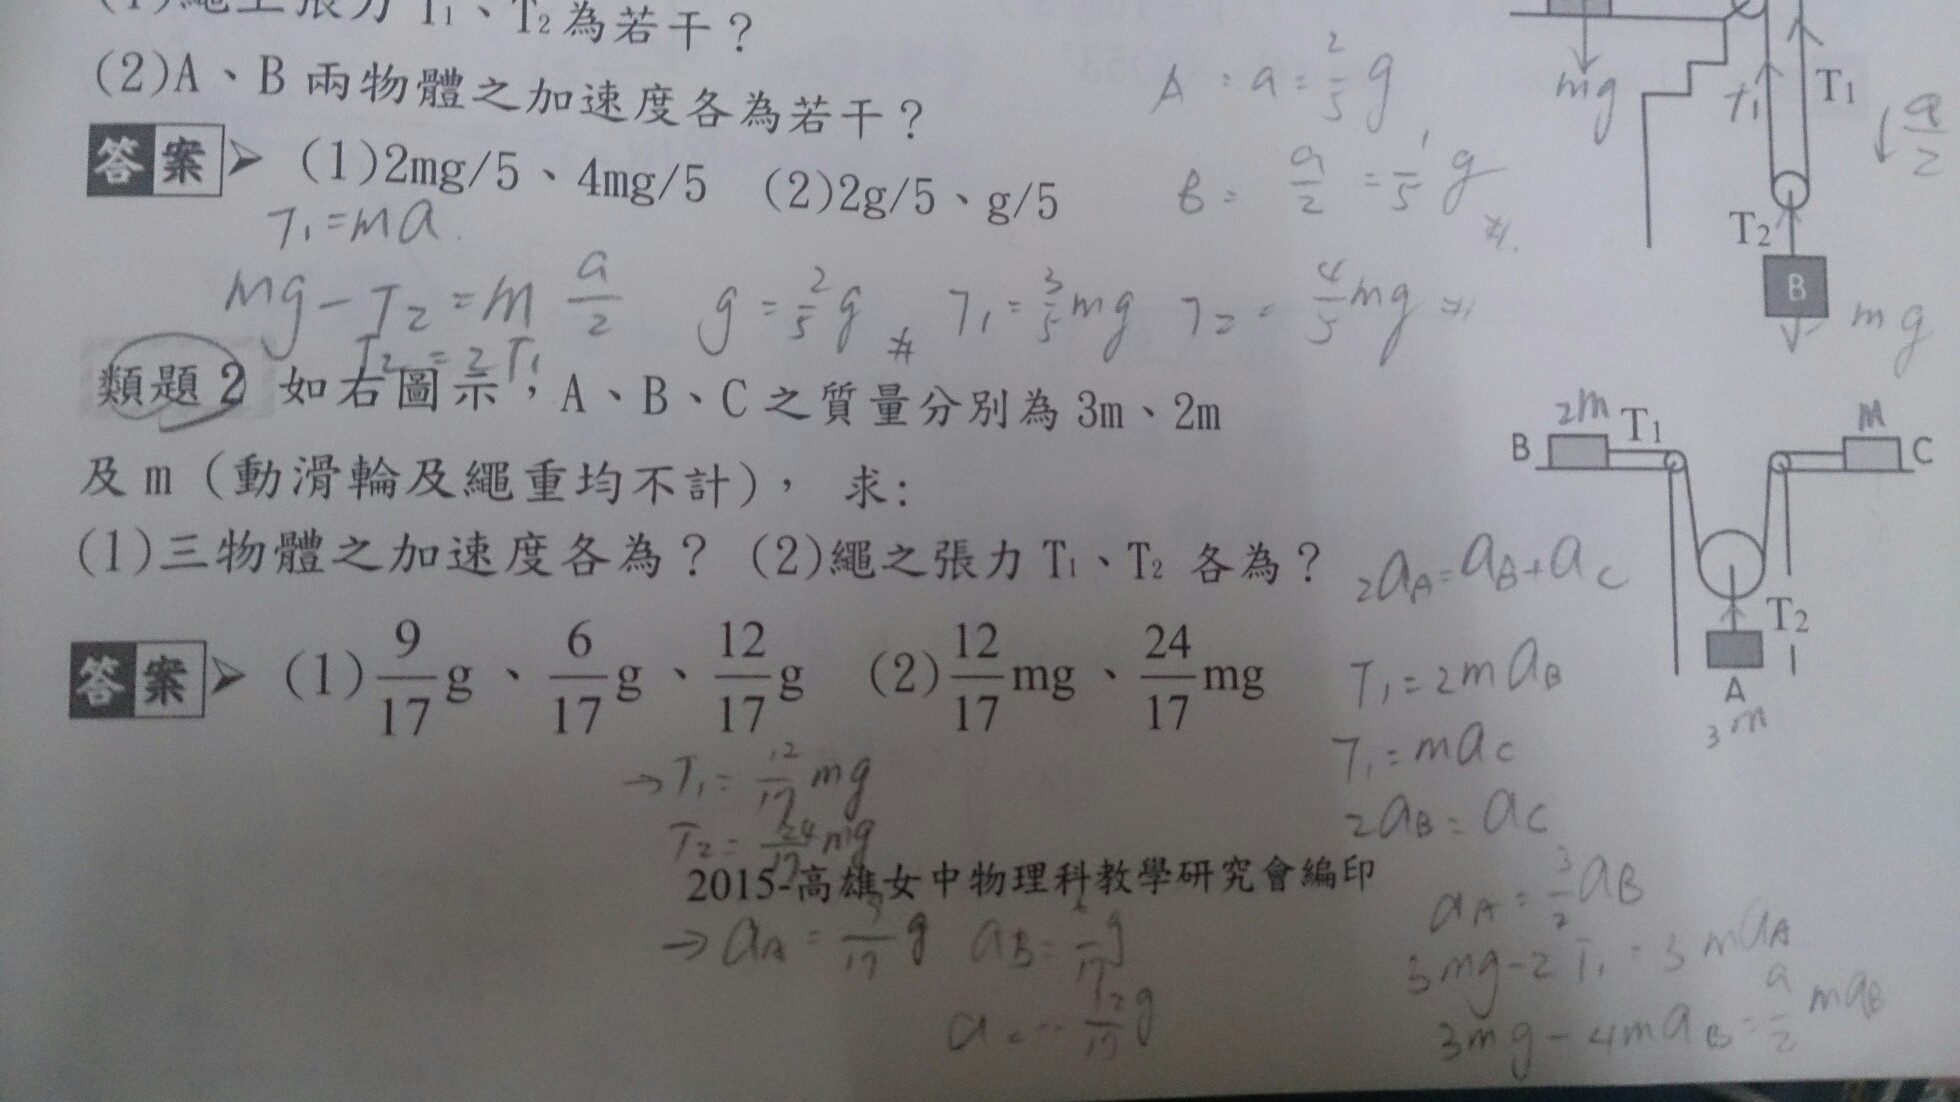 (1)繩上張力 T1、T2為若干？
(2)A、B 兩物體之加速度各為若干？
答案 (1)2mg/5、4mg/5 (2)2g/5、g/5
T1=ma
mg-T2=m a/2
T2=2T1
g=2/5 g
T1=3/5 mg T2=4/5 mg
A:a=2/5 g
B=a/2=1/5 g
mg
T1
T1
a/2
T2
B
mg
類題2 如右圖示，A、B、C 之質量分別為 3m、2m
及 m（動滑輪及繩重均不計）， 求:
(1)三物體之加速度各為？ (2)繩之張力 T1、T2 各為？
答案 (1) 9/17 g、6/17 g、12/17 g (2) 12/17 mg、24/17 mg
B 2m T1 m C
T2
A
3m
2aA=aB+aC
T1=2maB
T1=maC
2aB=aC
aA=3/2 aB
3mg-2T1=3maA
3mg-4maB=9/2 maB
→T1=12/17 mg
T2=24/17 mg
2015-高雄女中物理科教學研究會編印
→aA=9/17 g aB=6/17 g
12/17 g